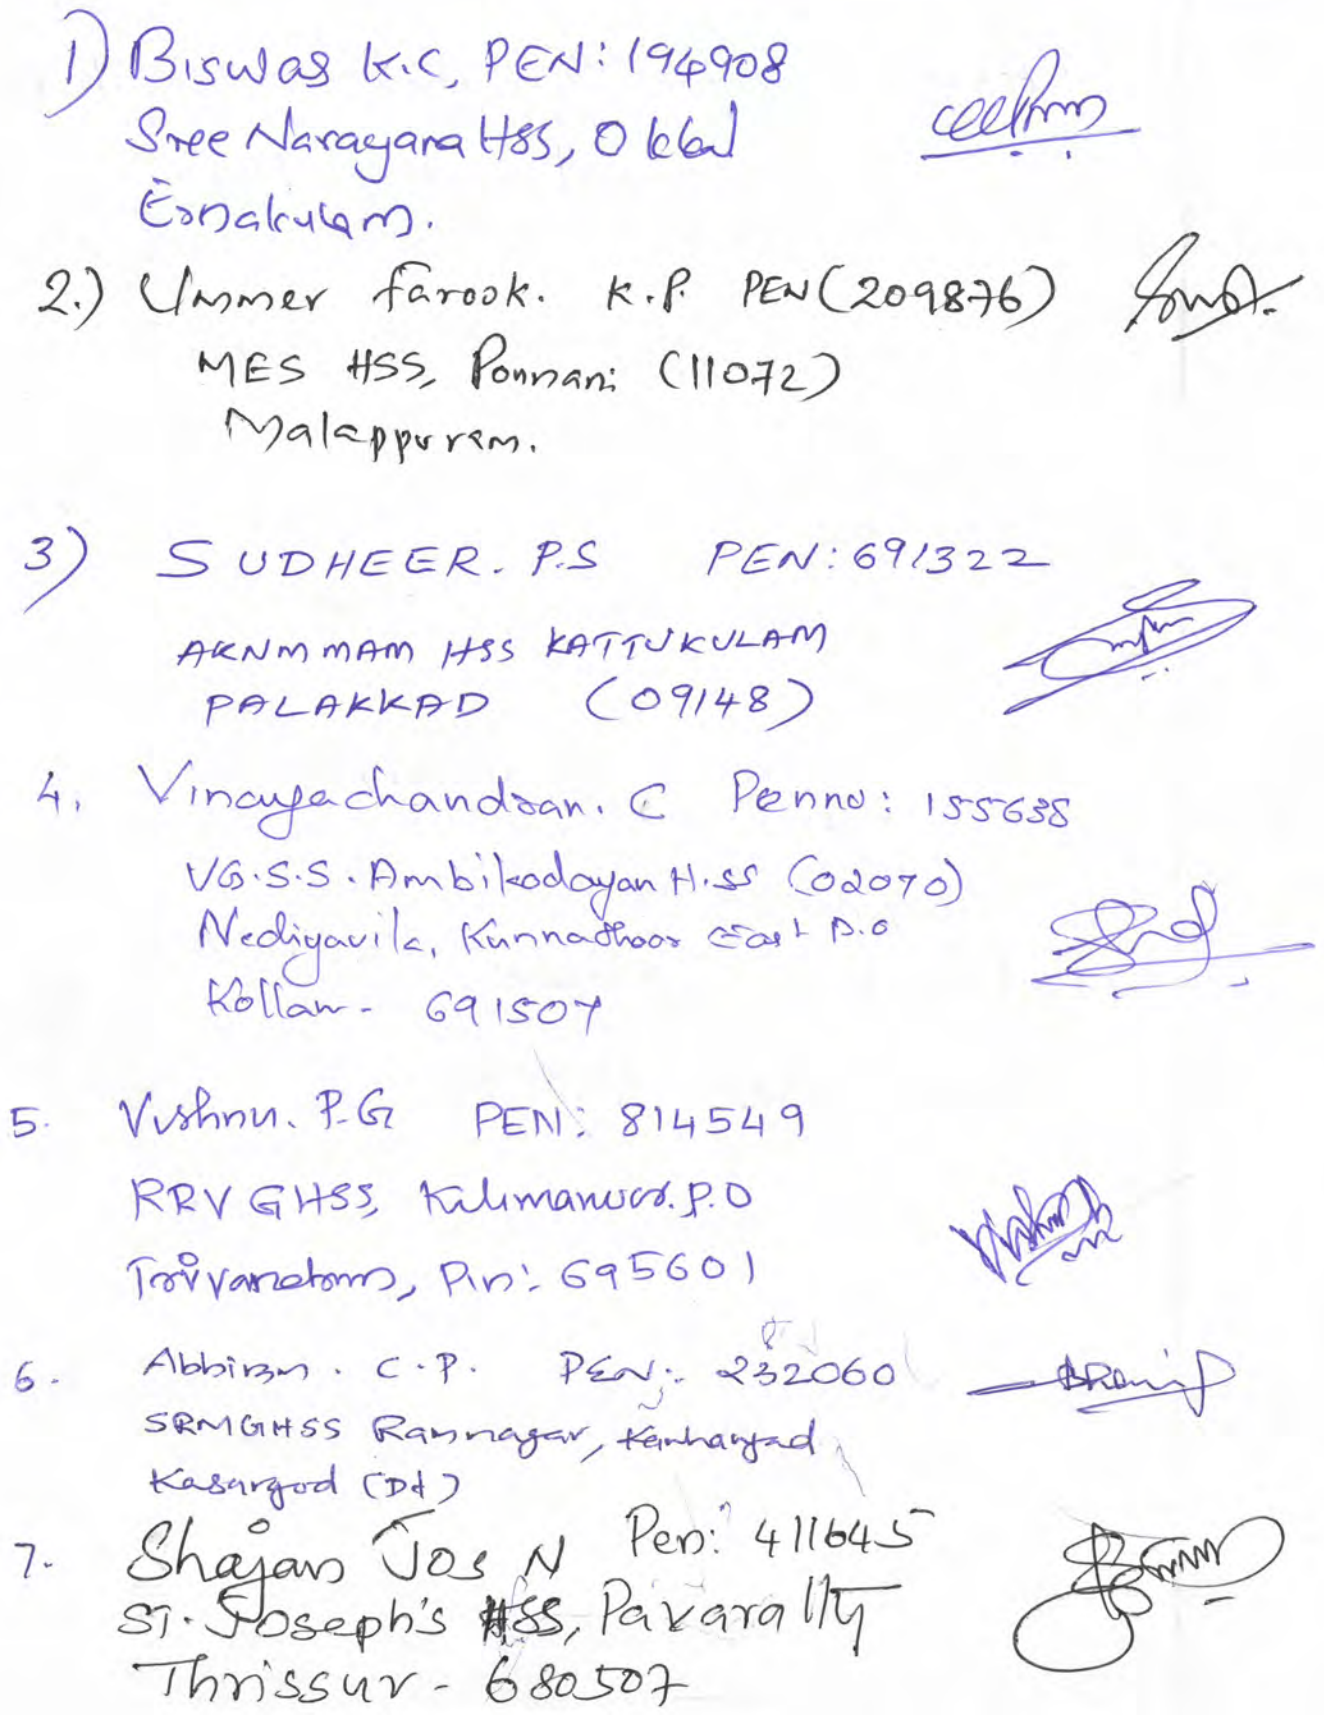 1) Biswas K.C, PEN: 194908
Sree Narayana HSS, Okkal
Ernakulam.
2.) Ummer farook. K.P. PEN (209876)
MES HSS, Ponnani (11072)
Malappuram.
3) SUDHEER. P.S PEN: 691322
AKNMMAM HSS KATTUKULAM
PALAKKAD (09148)
4. Vinayachandran. C Penno: 155638
VG.S.S. Ambikodayan H.SS (02070)
Nediyavila, Kunnathoor East P.O
Kollam - 691507
5. Vishnu. P.G PEN: 814549
RRV GHSS, Kilimanoor. P.O
Trivandrum, Pin: 695601
6. Abhiram. C.P. PEN: 232060
SRMGHSS Ramnagar, Kanhangad
Kasargod (Dt)
7. Shajan Jos N Pen: 411645
ST. Joseph's HSS, Pavaratty
Thrissur - 680507